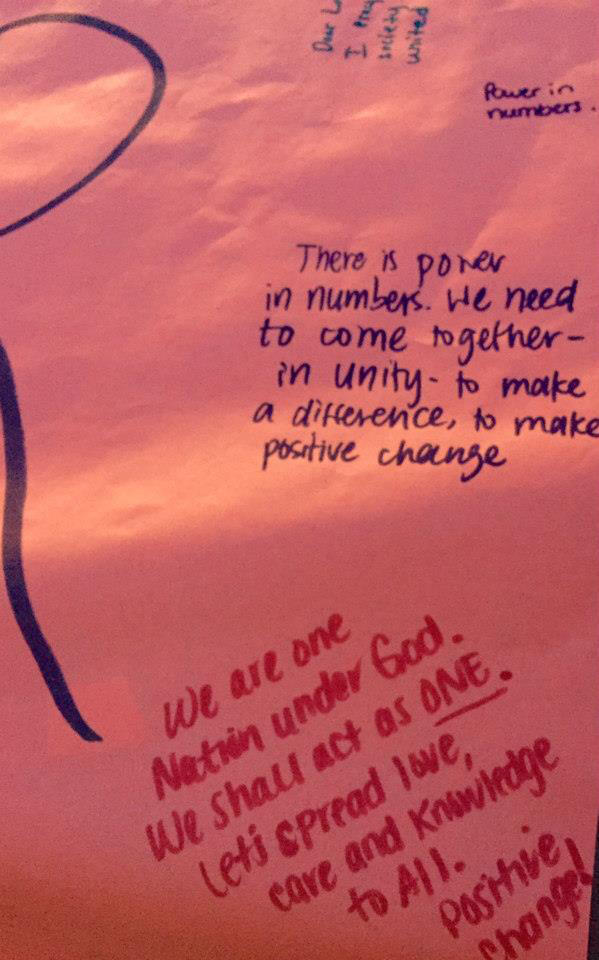 Dear L
I pray
society
united
Power in
numbers.
There is power
in numbers. We need
to come together-
in unity- to make
a difference, to make
positive change
We are one
Nation under God.
We shall act as ONE.
Let's spread love,
care and Knowledge
to All.
positive
change!